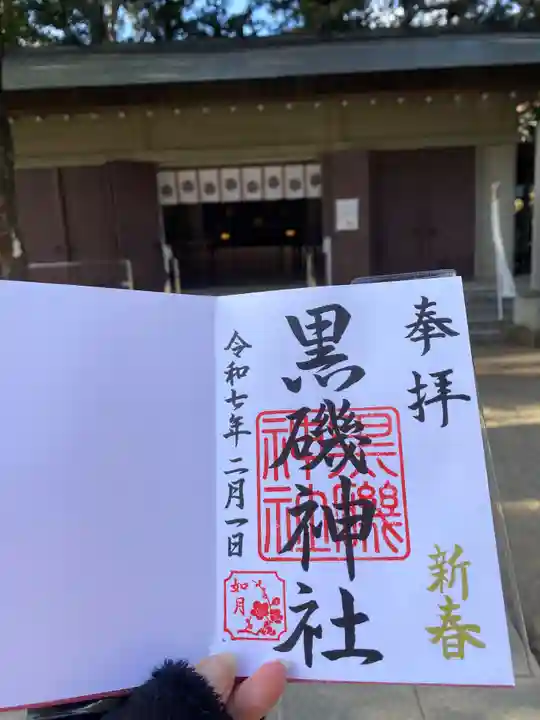 奉拝
新春
黒磯神社
黒磯
神社
令和七年二月一日
如月